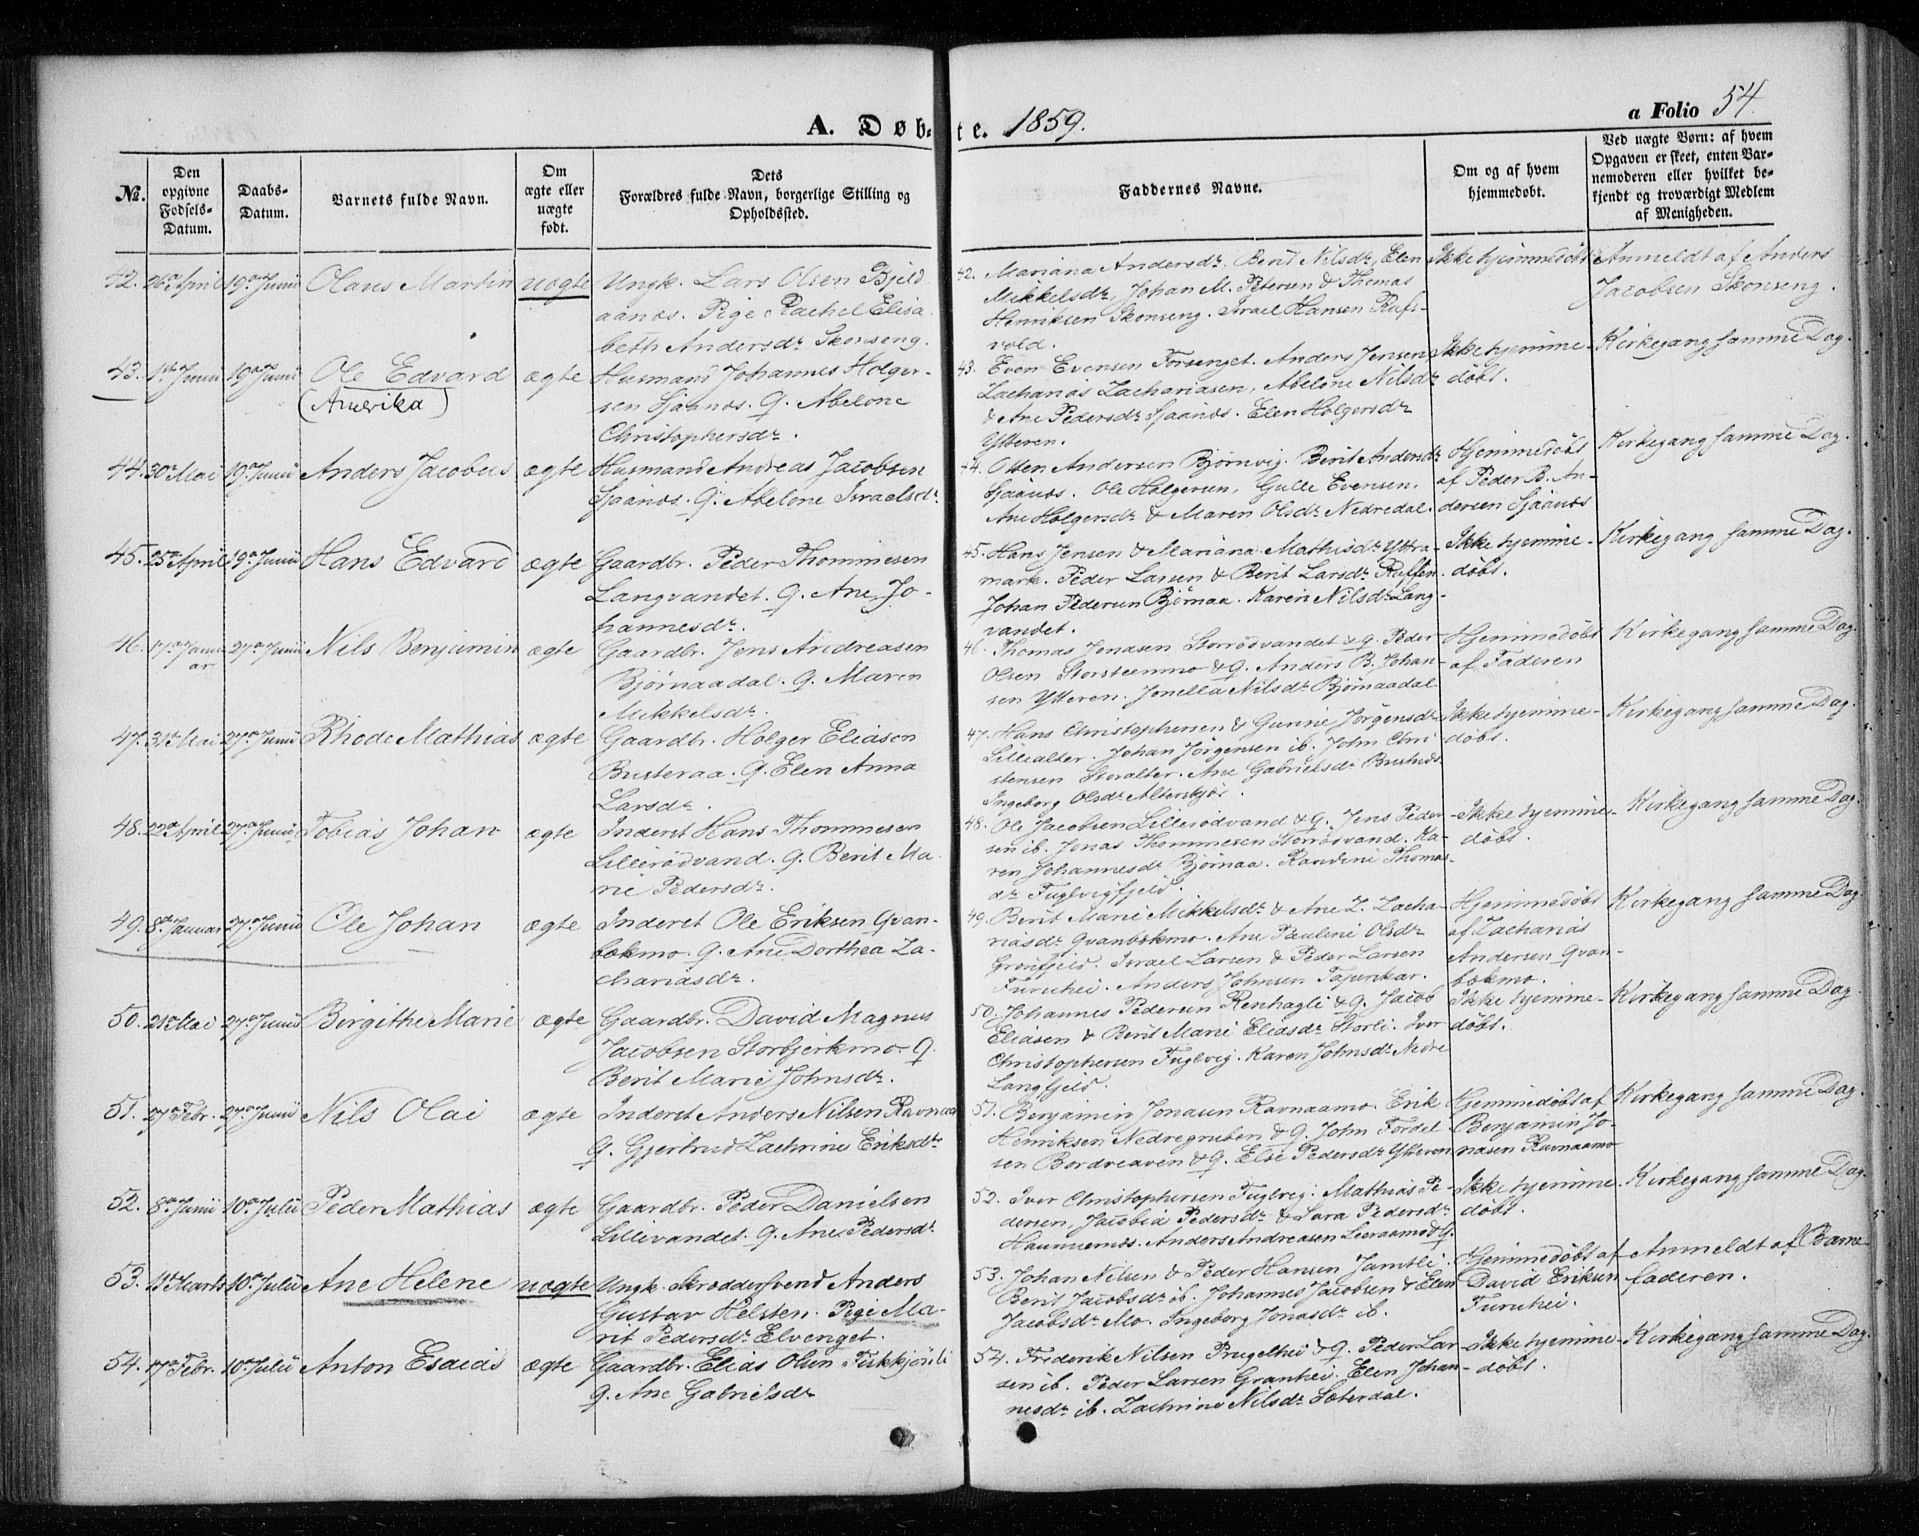 A. Døbte. 1859.
a Folio 54.
№.
Den opgivne Fødsels-Datum.
Daabs-Datum.
Barnets fulde Navn.
Om ægte eller uægte født.
Dets Forældres fulde Navn, borgerlige Stilling og Opholdssted.
Faddernes Navne.
Om og af hvem hjemmedøbt.
Ved uægte Børn: af hvem Opgaven er skeet, enten Barnemoderen eller hvilket bekjendt og troværdigt Medlem af Menigheden.
42. 26de April 19de Junii Olaus Martin uægte Ungk. Lars Olsen Bjeld
aanæs. Pige Rachel Elisa
beth Andersdr. Skonseng.
42. Mariana Andersdr. Berit Nilsdr, Elen
Mikkelsdr, Johan M. Petersen & Thomas
Henriksen Skonseng. Israel Hansen Rufs-
vold.
Ikke hjemmedøbt
Anmeldt af Anders
Jacobsen Skonseng.
43. 1ste Junii 19de Junii Ole Edvard ægte Husmand Johannes Holger-
(Amerika) sen Sjaanæs. G. Abelone
Christophersdr.
43. Even Evensen Forsenget. Anders Jensen
Zacharias Zachariasen, Abelone Nilsdr
& Ane Pedersdr Sjaanæs. Elen Holgersdr
Ytteren.
Ikke hjemme-
døbt.
Kirkegang samme Dag.
44. 30te Mai 19de Junii Anders Jacobus ægte Husmand Andreas Jacobsen
Sjaanæs. G. Abelone Israelsdr.
44. Otten Andersen Bjørnvig. Berit Andersdr
Sjaanæs. Ole Holgersen, Gulle Evensen,
Ane Holgersdr & Maren Olsdr Nedredal.
Hjemmedøbt
af Peder B. An-
dersen Sjaanæs
Kirkegang samme Dag.
45. 25de April 19de Junii Hans Edvard ægte Gaardbr. Peder Thommesen
Langvandet. G. Ane Jo-
hannesdr.
45. Hans Jensen & Mariana Mathisdr Yttra-
mark. Peder Larsen & Berit Larsdr Røffen
Johan Pedersen Bjørnaa. Karen Nilsdr Lang-
vandet.
Ikke hjemme-
døbt.
Kirkegang samme Dag.
46. 17de Janu 27de Junii Nils Benjamin ægte Gaardbr. Jens Andreasen
ar Bjørnaadal. G. Maren
Mikkelsdr.
46. Thomas Jonasen Storrödvandet & G. Peder
Olsen Storsteenmo & G. Anders B. Johan-
sen Ytteren. Jonella Nilsdr Bjørnaadal
Hjemmedøbt
af Faderen
Kirkegang samme Dag.
47. 31te Mai 27de Junii Rhode Mathias ægte Gaardbr. Holger Eliasen
Busteraa. G. Elen Anna
Larsdr.
47. Hans Christophersen & Gurine Jørgensdr
Lillealter. Johan Jørgensen ib. John Chri-
stensen Storalter. Ane Gabrielsdr
Ingeborg Olsdr Alterskjær.
Ikke hjemme-
døbt.
Kirkegang samme Dag.
48. 22de April 27de Junii Tobias Johan ægte Inderst Hans Thommesen
Lillerödvand. G. Berit Ma-
rie Pedersdr.
48. Ole Jacobsen Lillerödvand & G. Jens Peder-
sen ib. Jonas Thommesen Storrödvand. Ka-
ren Johannesdr Bjørnaa. Randine Thomas-
dr Fuglvigfjeld.
Ikke hjemme-
døbt.
Kirkegang samme Dag.
49. 8de Januar 27de Junii Ole Johan ægte Inderst Ole Eriksen Qvan-
bækmo. G. Ane Dorthea Za-
chariasdr.
49. Berit Marie Mikkelsdr & Ane Z. Zacha-
riasdr Qvanbækmo. Ane Pauline Olsdr
Grønfjeld. Israel Larsen & Peder Larsen
Furuhei. Anders Johnsen
Hjemmedøbt
af Zacharias
Andersen Qvan-
bækmo.
Kirkegang samme Dag
50. 21de Mai 27de Junii Birgithe Marie ægte Gaardbr. David Magnus
Jacobsen Storbjerkmo. G.
Berit Marie Johnsdr.
50. Johannes Pedersen Renhagli & G. Jacob
Eliasen & Berit Marie Eliasdr Storli. Iver
Christophersen Fuglvig. Karen Johnsdr Nedre
Langfjeld.
Ikke hjemme-
døbt.
Kirkegang samme Dag.
51. 27de Febr. 27de Junii Nils Olai ægte Inderst Anders Nilsen Ravnaa
G. Gjertrud Zachrine Eriksdr.
51. Benjamin Jonasen Ravnaamo. Erik
Henriksen Nedregruben & G. John Fordel-
sen Bordveaven & G. Else Pedersdr Ytteren
Hjemmedøbt af
Benjamin Jo-
nasen Ravnaamo
Kirkegang samme Dag.
52. 8de Junii 10de Julii Peder Mathias ægte Gaardbr. Peder Danielsen
Lillevandet. G. Ane Pedersdr.
52. Iver Christophersen Fuglvig. Mathias Pe-
dersen, Jacobia Pedersdr & Lara Pedersdr
Haunernæs. Anders Andreasen Leeraamo & G.
Ikke hjemme-
døbt.
Kirkegang samme Dag
53. 11te Marts 10de Julii Ane Helene uægte Ungk. Skreddersvend Anders
Gustav Helsten. Pige Ma-
rit Pedersdr Elvenget.
53. Johan Nilsen & Peder Hansen Jamtli.
Berit Jacobsdr ib. Johannes Jacobsen & Elen
Jacobsdr Mo. Ingeborg Jonasdr ib.
Hjemmedøbt af
David Eriksen
Furuhei.
Anmeldt af Barne-
faderen.
54. 17de Febr. 10de Julii Anton Esaias ægte Gaardbr. Elias Olsen Fiskkjönli
G. Ane Gabrielsdr
54. Frederik Nilsen Prugelhei & G. Peder Lar-
sen ib. Peder Larsen Granhei. Elen Johan-
nesdr ib. Zachrine Nilsdr Sæterdal.
Ikke hjemme-
døbt.
Kirkegang samme Dag.